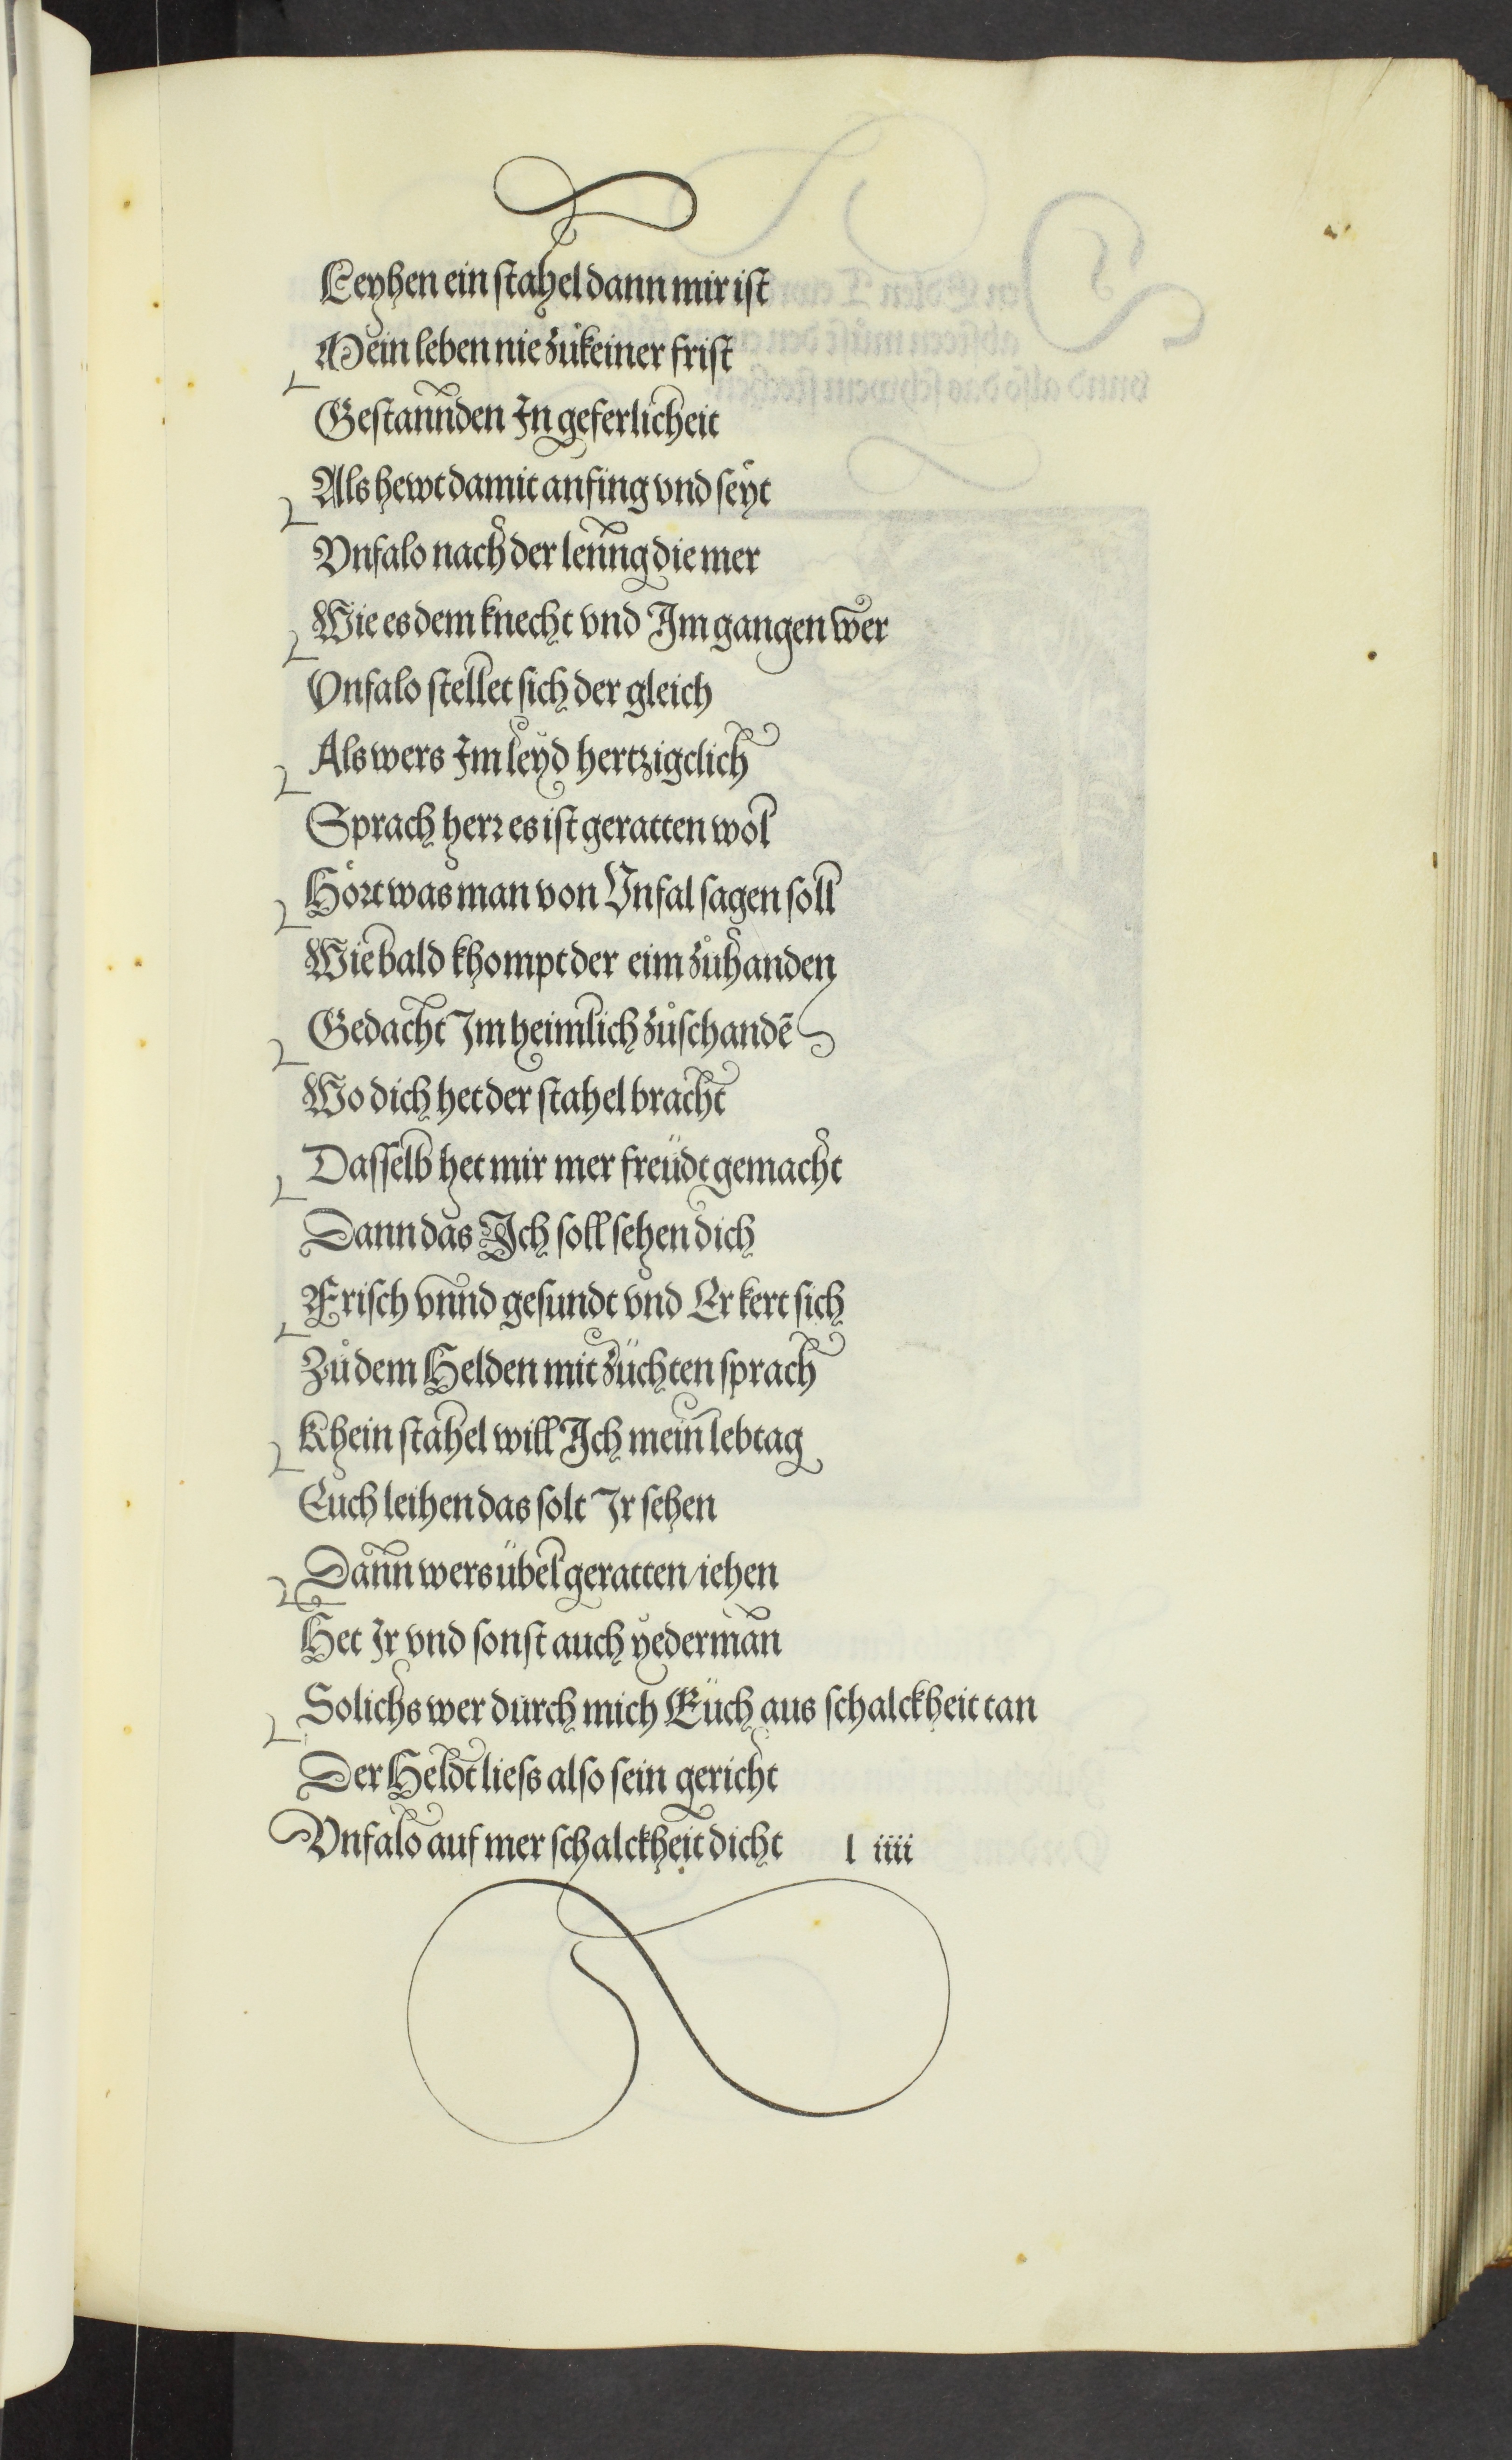 Leyhen ein stahel dann mir ist
Mein leben nie zůkeiner frist
Gestannden In geferlicheit
Als hewt damit anfing vnd seyt
Vnfalo nach der lenng die mer
Wie es dem knecht vnd Im gangen wer
Vnfalo stellet sich der gleich
Als wers Im leyd hertzigclich
Sprach herr es ist geratten wol
Hört was man von Vnfal sagen soll
Wie bald khompt der eim zůhanden
Gedacht Im heimlich zůschandē
Wo dich het der stahel bracht
Dasselb het mir mer freüdt gemacht
Dann das Ich soll sehen dich
Frisch vnnd gesundt vnd Er kert sich
Zů dem Helden mit züchten sprach
Khein stahel will Ich mein lebtag
Euch leihen das solt Ir sehen
Dann wers übel geratten/iehen
Het Ir vnd sonst auch yederman
Solichs wer durch mich Eüch aus schalckheit tan
Der Heldt liess also sein gericht
Vnfalo auf mer schalckheit dicht l iiii